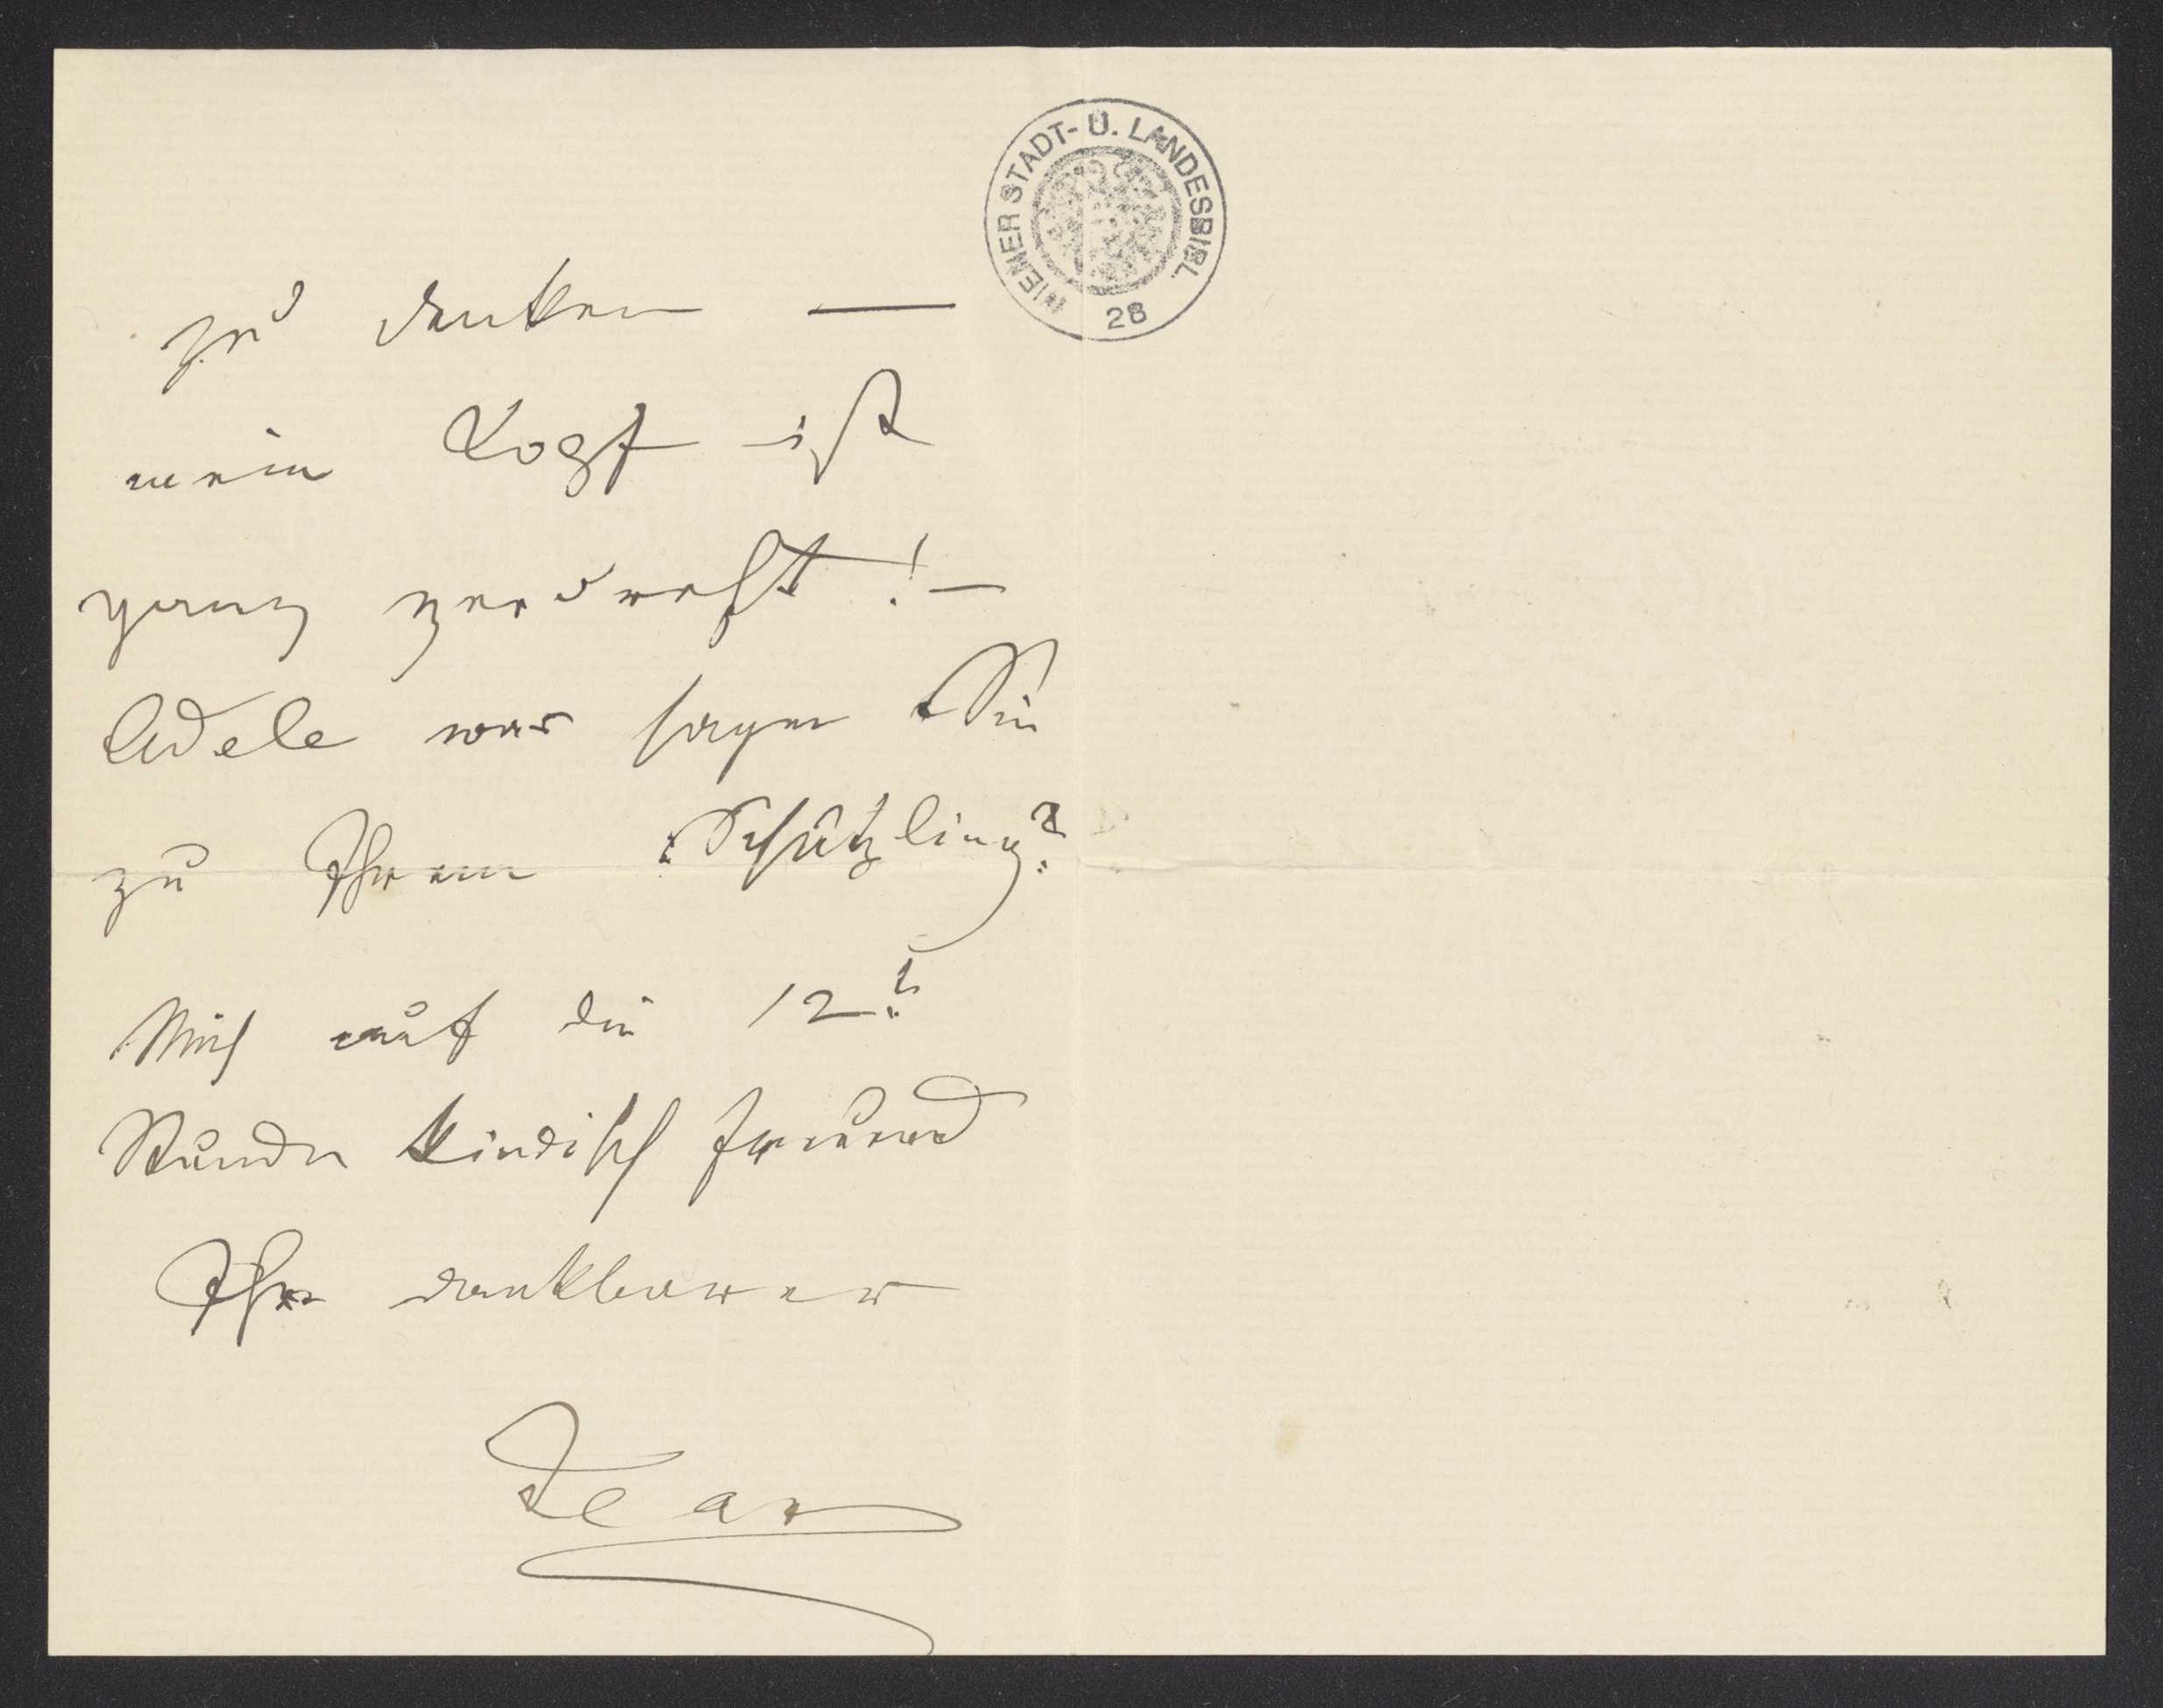 WIENER STADT- U. LANDESBIBL.
28
zu denken —
mein Kopf ist
ganz zerdreht! –
Adele was sagen Sie
zu Ihrem Schützling?
Mich auf die 12t.
Stunde kindisch freuend
Ihr dankbarer
Jean